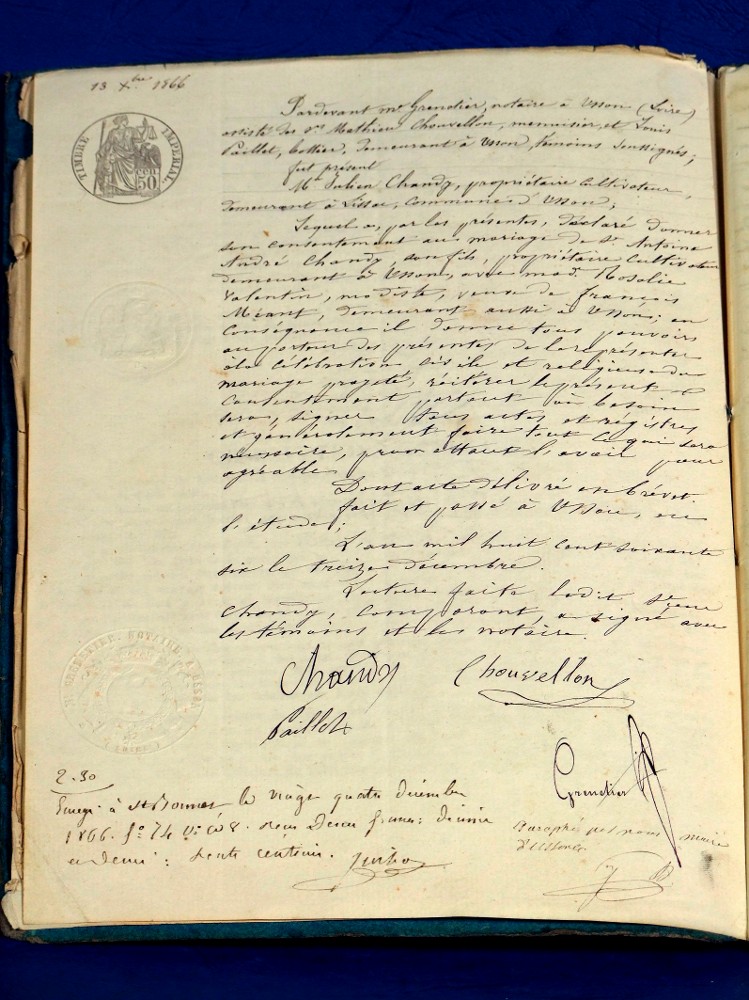 13 Xbre 1866
TIMBRE IMPERIAL
50
Pardevant Me Grendier, notaire à Usson (Loire)
assisté des srs Mathieu Chouvellon, menuisier, et Louis
Paillet, bottier, demeurant à Usson, témoins soussignés;
fut présent
Mr Julien Chandy, propriétaire cultivateur,
demeurant à Lissac, commune d'Usson;
Lequel a, par les présentes, déclaré donner
son consentement au mariage de sr Antoine
André Chandy, son fils, propriétaire cultivateur
demeurant à Usson, avec mad. Rosalie
Valentin, modiste, veuve de françois
Méant, demeurant aussi à Usson; en
conséquence il donne tous pouvoirs
au porteur des présentes de le représenter
à la célébration civile et religieuse du
mariage projeté, réitérer le présent
consentement partout où besoin
sera, signer tous actes et régistres
et généralement faire tout ce qui sera
nécessaire, promettant l'avoir pour
agréable
Dont acte délivré en brévet.
fait et passé à Usson, en
l'étude;
L'an mil huit cent soixante
six le treize décembre.
Lecture faite ledit sieur
Chandy, comparant, a signé avec
les témoins et le notaire.
Chandy Chouvellon
Paillet
Grendier
GRENDIER, NOTAIRE A USSON
(LOIRE)
2.30
Enregé à St Bonnet le vingt quatre décembre
1866. fo 74 Vo Co 8. reçu Deux francs décime
et demi: trente centimes.
Paraphé par nous maire
d'Usson